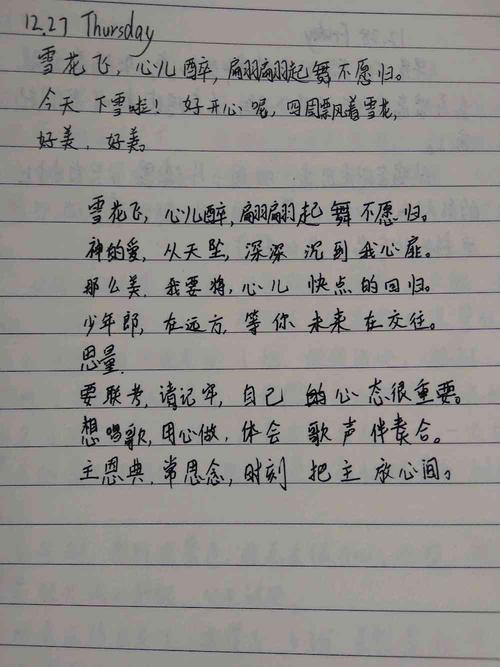 12.27 Thursday
雪花飞，心儿醉，翩翩起舞不愿归。
今天 下雪啦！好开心呢，四周飘着雪花，
好美，好美。
雪花飞，心儿醉，翩翩起舞不愿归。
神的爱，从天坠，深深沉到我心扉。
那么美，我要将，心儿快点的回归。
少年郎，在远方，等你未来在交往。
思量
要联考，请记牢，自己的心态很重要。
想唱歌，用心做，体会歌声伴奏合。
主恩典，常思念，时刻把主放心间。